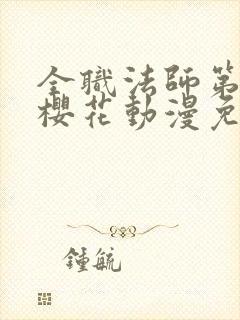 全職法師第
櫻花動漫免
鍾毓